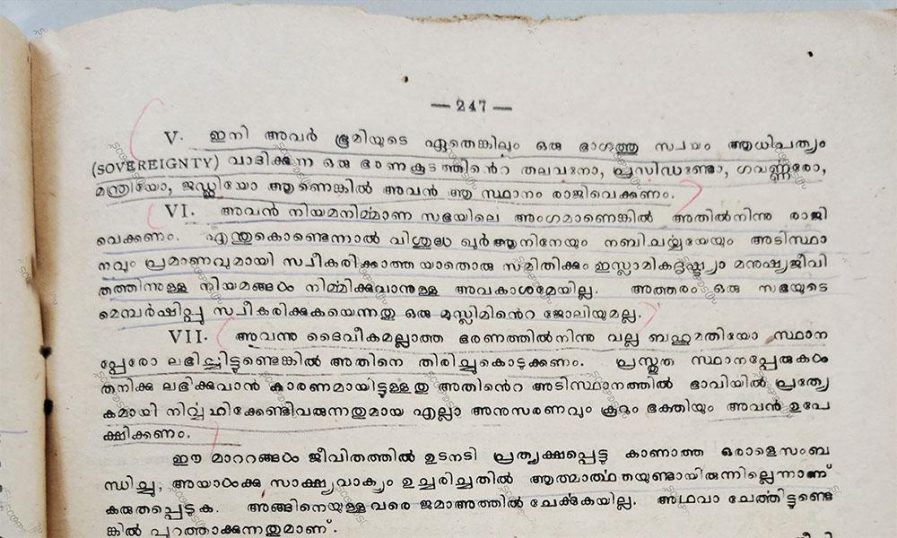 — 247 —
V. ഇനി അവർ ഭൂമിയുടെ ഏതെങ്കിലും ഒരു ഭാഗത്തു സ്വയം ആധിപത്യം
(SOVEREIGNTY) വാദിക്കുന്ന ഒരു ഭരണകൂടത്തിൻെറ തലവനോ, പ്രസിഡണ്ടോ, ഗവർണ്ണരോ,
മന്ത്രിയോ, ജഡ്ജിയോ ആണെങ്കിൽ അവൻ ആ സ്ഥാനം രാജിവെക്കണം.
VI. അവൻ നിയമനിർമ്മാണ സഭയിലെ അംഗമാണെങ്കിൽ അതിൽനിന്നു രാജി
വെക്കണം. എന്തുകൊണ്ടെന്നാൽ വിശുദ്ധ ഖുർആനിനേയും നബിചര്യയേയും അടിസ്ഥാ
നവും പ്രമാണവുമായി സ്വീകരിക്കാത്ത യാതൊരു സമിതിക്കും ഇസ്ലാമികദൃഷ്ട്യാ മനുഷ്യജീവി
തത്തിനുള്ള നിയമങ്ങൾ നിർമ്മിക്കുവാനുള്ള അവകാശമേയില്ല. അത്തരം ഒരു സഭയുടെ
മെമ്പർഷിപ്പു സ്വീകരിക്കുകയെന്നതു ഒരു മുസ്ലിമിൻെറ ജോലിയുമല്ല.
VII. അവന്നു ദൈവീകമല്ലാത്ത ഭരണത്തിൽനിന്നു വല്ല ബഹുമതിയോ സ്ഥാന
പ്പേരോ ലഭിച്ചിട്ടുണ്ടെങ്കിൽ അതിനെ തിരിച്ചുകൊടുക്കണം. പ്രസ്തുത സ്ഥാനപ്പേരുകൾ
തനിക്കു ലഭിക്കുവാൻ കാരണമായിട്ടുള്ളതു അതിൻെറ അടിസ്ഥാനത്തിൽ ഭാവിയിൽ പ്രത്യേ
കമായി നിർവ്വഹിക്കേണ്ടിവരുന്നതുമായ എല്ലാ അനുസരണവും കൂറും ഭക്തിയും അവൻ ഉപേ
ക്ഷിക്കണം.
ഈ മാററങ്ങൾ ജീവിതത്തിൽ ഉടനടി പ്രത്യക്ഷപ്പെട്ടു കാണാത്ത ഒരാളെസംബ
ന്ധിച്ചു, അയാൾക്കു സാക്ഷ്യവാക്യം ഉച്ചരിച്ചതിൽ ആത്മാർത്ഥതയുണ്ടായിരുന്നില്ലെന്നാണ്
കരുതപ്പെടുക. അങ്ങിനെയുള്ളവരെ ജമാഅത്തിൽ ചേർക്കുകയില്ല. അഥവാ ചേർത്തിട്ടുണ്ടെ
ങ്കിൽ പുറത്താക്കുന്നതുമാണ്.